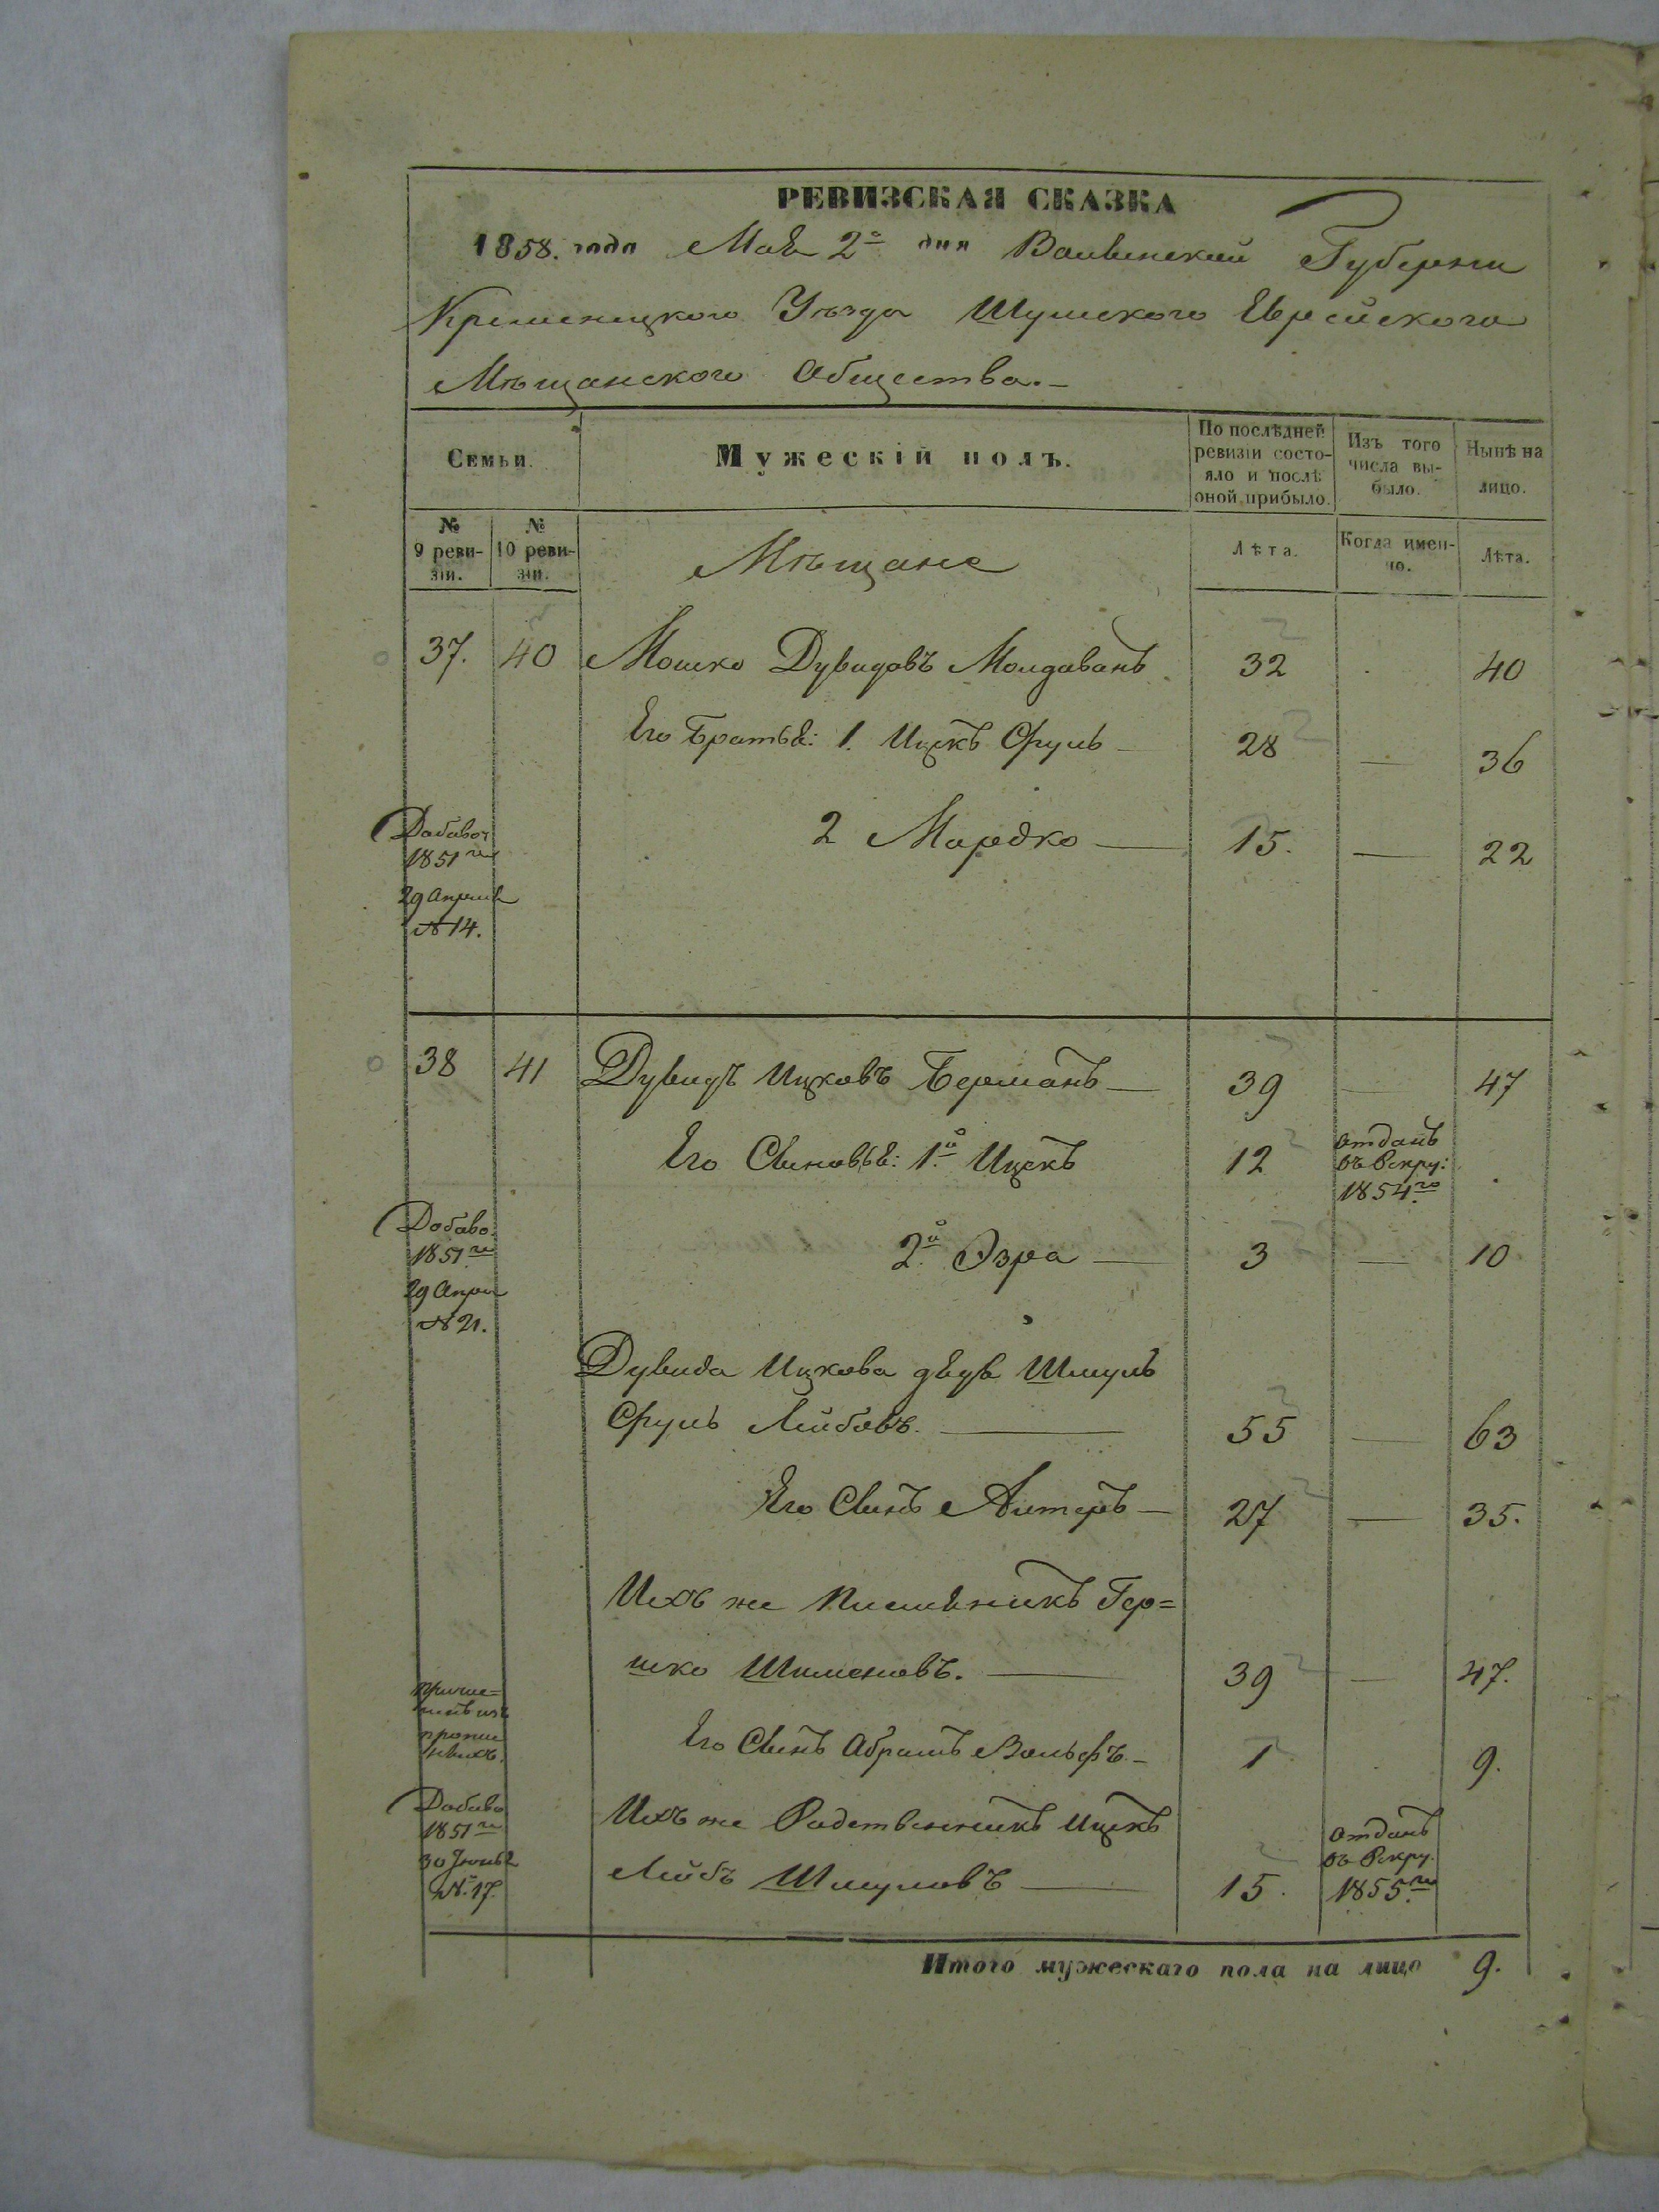 РЕВИЗСКАЯ СКАЗКА
1858. года Мая 2го дня Волынской Губерніи
Кременецкого Уѣзда Шумского Еврейского
Мѣщанского Общества.
Семьи.
Мужескій полъ.
По послѣдней ревизіи состо-
яло и послѣ
оной прибыло.
Изъ того
числа вы-
было.
Нынѣ на
лицо.
№
9 реви-
зіи.
№
10 реви-
зіи.
Мѣщане
Лѣта.
Когда имен-
но.
Лѣта.
37. 40 Мошко Дувидовъ Молдаванъ 32 40
Его Братья: 1. Ицекъ Сруль — 28 — 36
2 Мордко — 15. — 22
Добавоч
1851го
29 Апреля
№ 14.
38 41 Дувидъ Ицковъ Берманъ — 39 — 47
Его Сыновья: 1й Ицекъ 12 отданъ
въ Рекру:
1854го
2й Эзра — 3 — 10
Добаво.
1851го
29 Апрел
№ 21.
Дувида Ицкова дядя Шмуль
Сруль Лейбовъ. — 55 — 63
Его Сынъ Алтеръ — 27 — 35.
Ихъ же Племяникъ Гер=
шко Шименовъ. — 39 — 47.
Его Сынъ Абрамъ Вольфъ. — 1 9.
Ихъ же Родственникъ Ицекъ
Лейбъ Шмуловъ — 15. отданъ
въ Рекру.
1855го
Добаво
1851го
30 Іюня
№. 17.
Итого мужескаго пола на лицо 9.